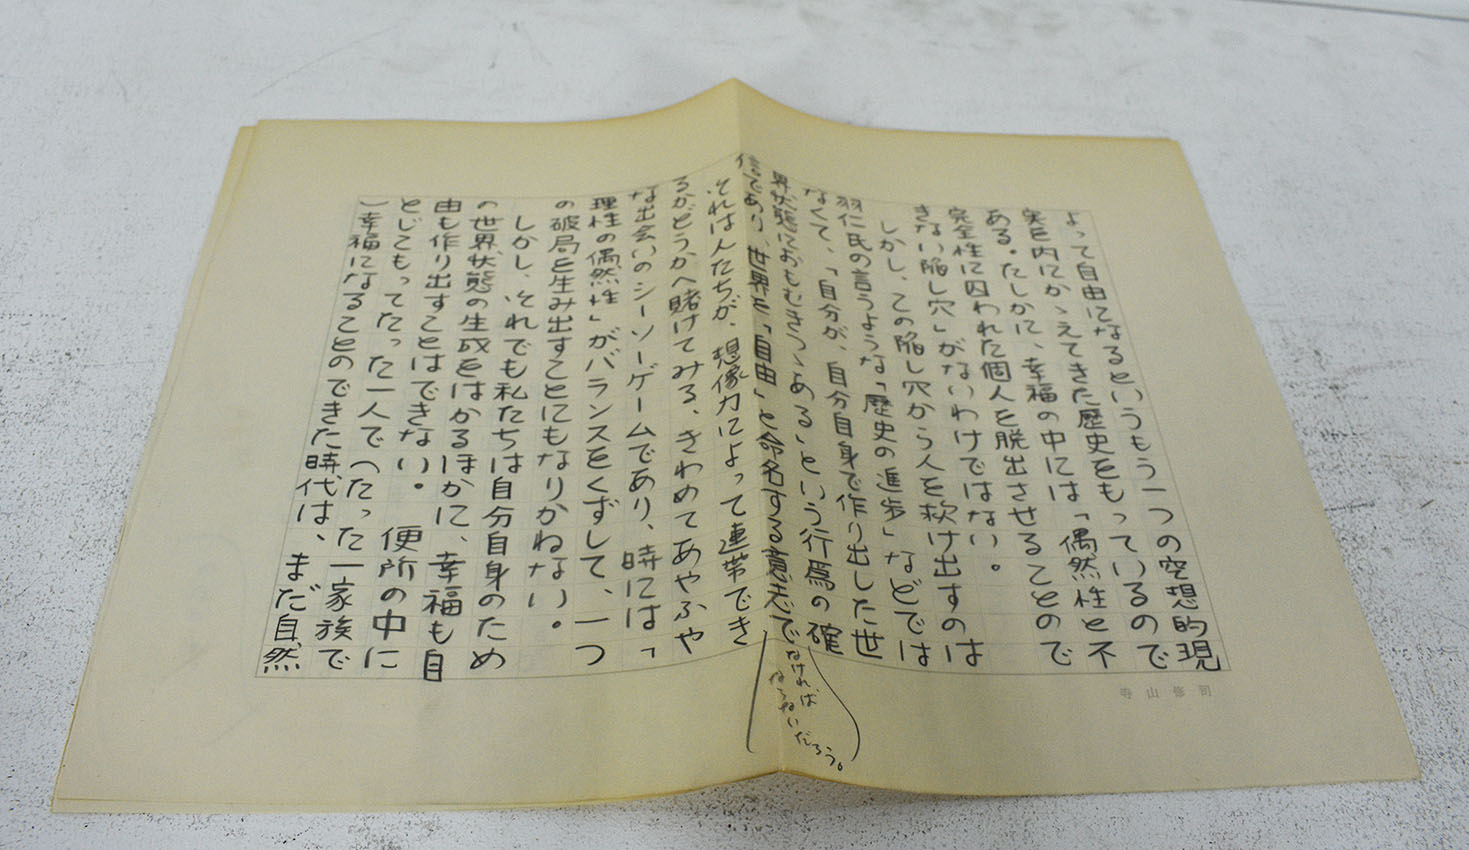 よって自由になるというもう一つの空想的現
実を内にかゝえてきた歴史をもっているので
ある。たしかに、幸福の中には「偶然性と不
完全性に囚われた個人を脱出させることので
きない陥し穴」がないわけではない。
しかし、この陥し穴から人を救け出すのは
羽仁氏の言うような「歴史の進歩」などでは
なくて、「自分が、自分自身で作り出した世
界状態におもむきつゝある」という行爲の確
信であり、世界を「自由」と命名する意志で
なければ
ならないだろう。
それは人たちが、想像力によって連帯でき
るかどうかへ賭けてみる、きわめてあやふや
な出会いのシーソーゲームであり、時には「
理性の偶然性」がバランスをくずして、一つ
の破局を生み出すことにもなりかねない。
しかし、それでも私たちは自分自身のため
の世界状態の生成をはかるほかに、幸福も自
由も作り出すことはできない。 便所の中に
とじこもってたった一人で(たった一家族で
)幸福になることのできた時代は、まだ自然
寺山修司